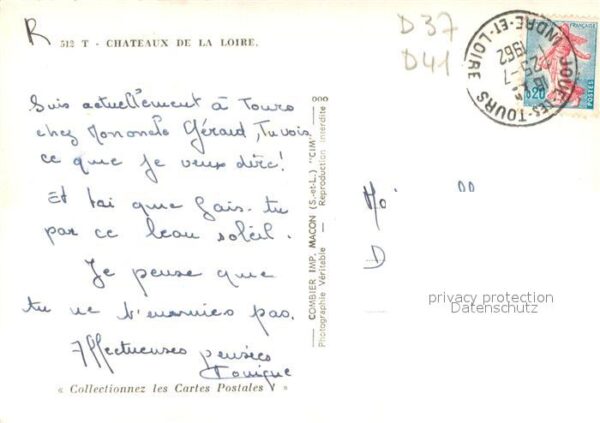 R
512 T - CHATEAUX DE LA LOIRE.
D37
D41
Suis actuellement à Tours
chez Géraud, Tu vois
ce que je veux dire!
Et toi que fais-tu
par ce beau soleil.
Je pense que
tu ne t'ennuies pas.
Affectueuses pensées
« Collectionnez les Cartes Postales ! »
COMBIER IMP. MACON (S.-et-L.) "CIM"
Photographie Véritable - Reproduction interdite
JOUÉ-LES-TOURS
INDRE-ET-LOIRE
25-7
1962
FRANÇAISE
0,20
POSTES
D
privacy protection
Datenschutz